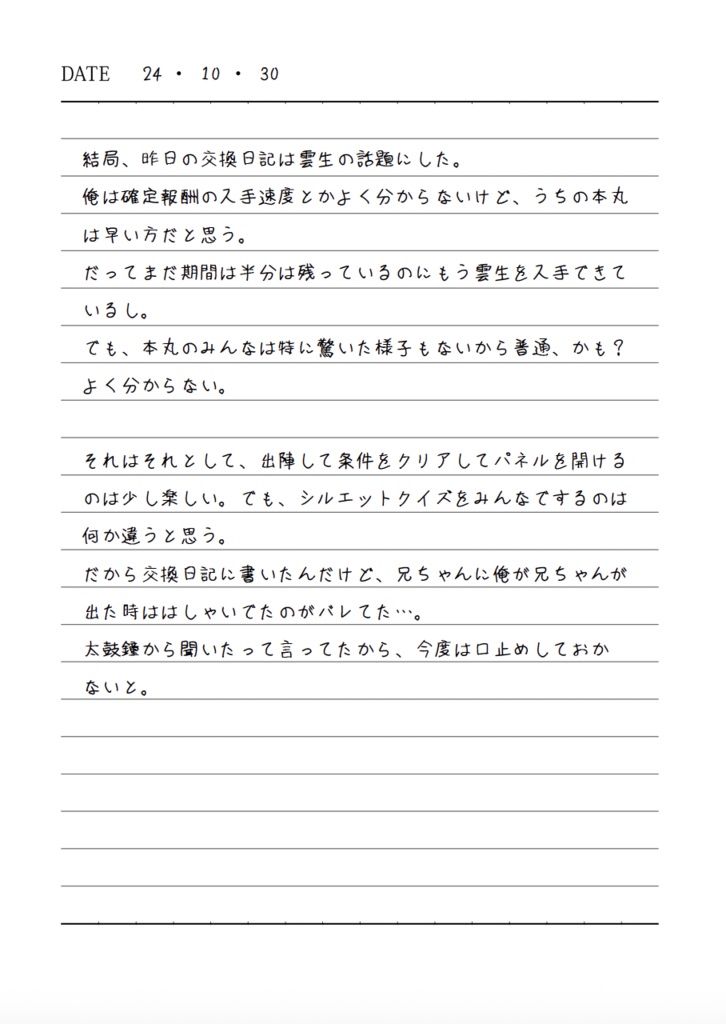 DATE 24・10・30
結局、昨日の交換日記は雲生の話題にした。
俺は確定報酬の入手速度とかよく分からないけど、うちの本丸
は早い方だと思う。
だってまだ期間は半分は残っているのにもう雲生を入手できて
いるし。
でも、本丸のみんなは特に驚いた様子もないから普通、かも？
よく分からない。
それはそれとして、出陣して条件をクリアしてパネルを開ける
のは少し楽しい。でも、シルエットクイズをみんなでするのは
何か違うと思う。
だから交換日記に書いたんだけど、兄ちゃんに俺が兄ちゃんが
出た時ははしゃいでたのがバレてた…。
太鼓鐘から聞いたって言ってたから、今度は口止めしておか
ないと。